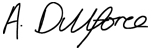 A. Dulforce